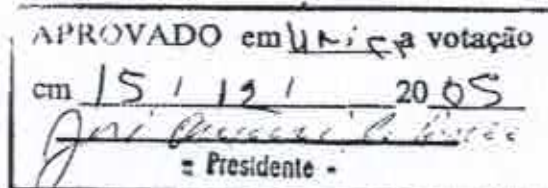 APROVADO em única votação
em 15 / 12 / 2005
= Presidente -